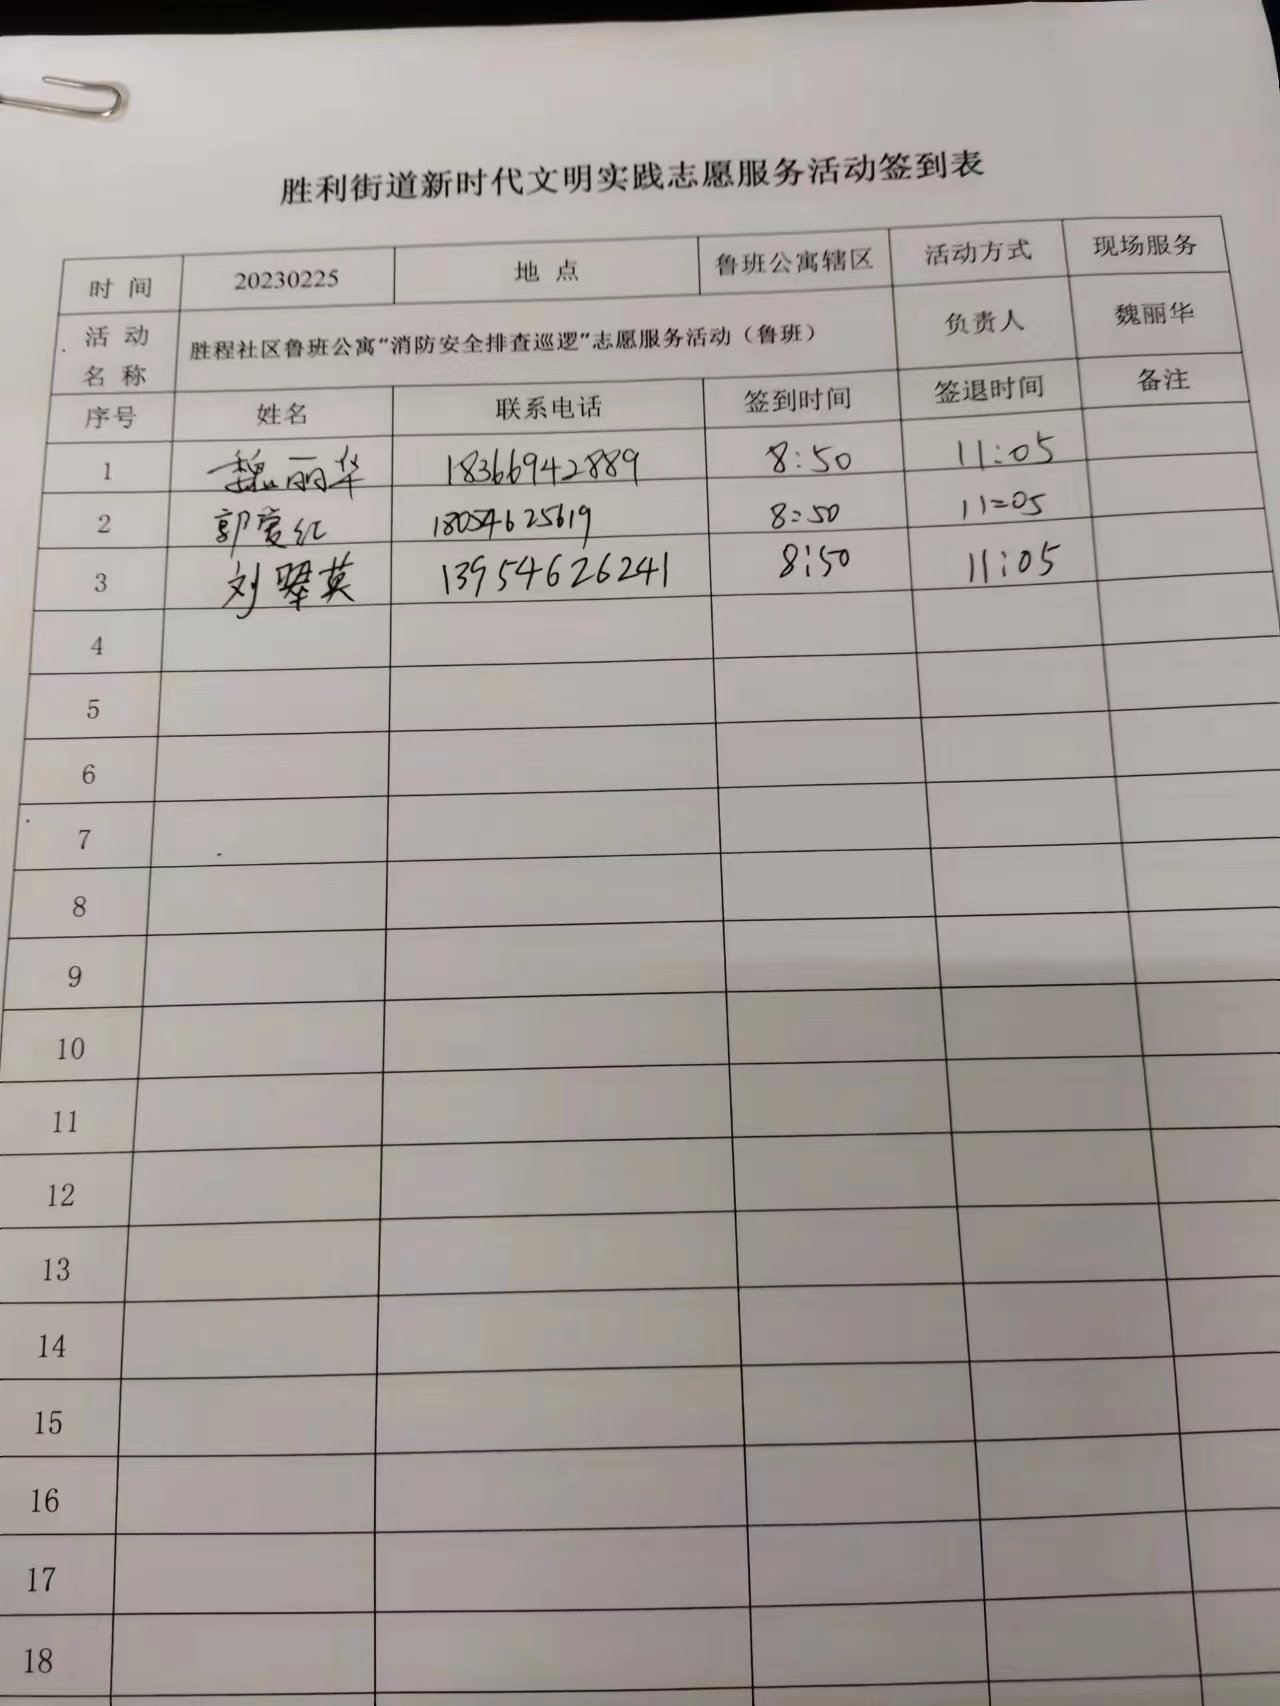 胜利街道新时代文明实践志愿服务活动签到表
时 间 20230225 地 点 鲁班公寓辖区 活动方式 现场服务
活 动 名 称 胜程社区鲁班公寓“消防安全排查巡逻”志愿服务活动（鲁班） 负责人 魏丽华
序号 姓名 联系电话 签到时间 签退时间 备注
1 魏丽华 18366942889 8:50 11:05
2 郭爱红 18054625619 8:50 11:05
3 刘翠英 13954626241 8:50 11:05
4
5
6
7
8
9
10
11
12
13
14
15
16
17
18